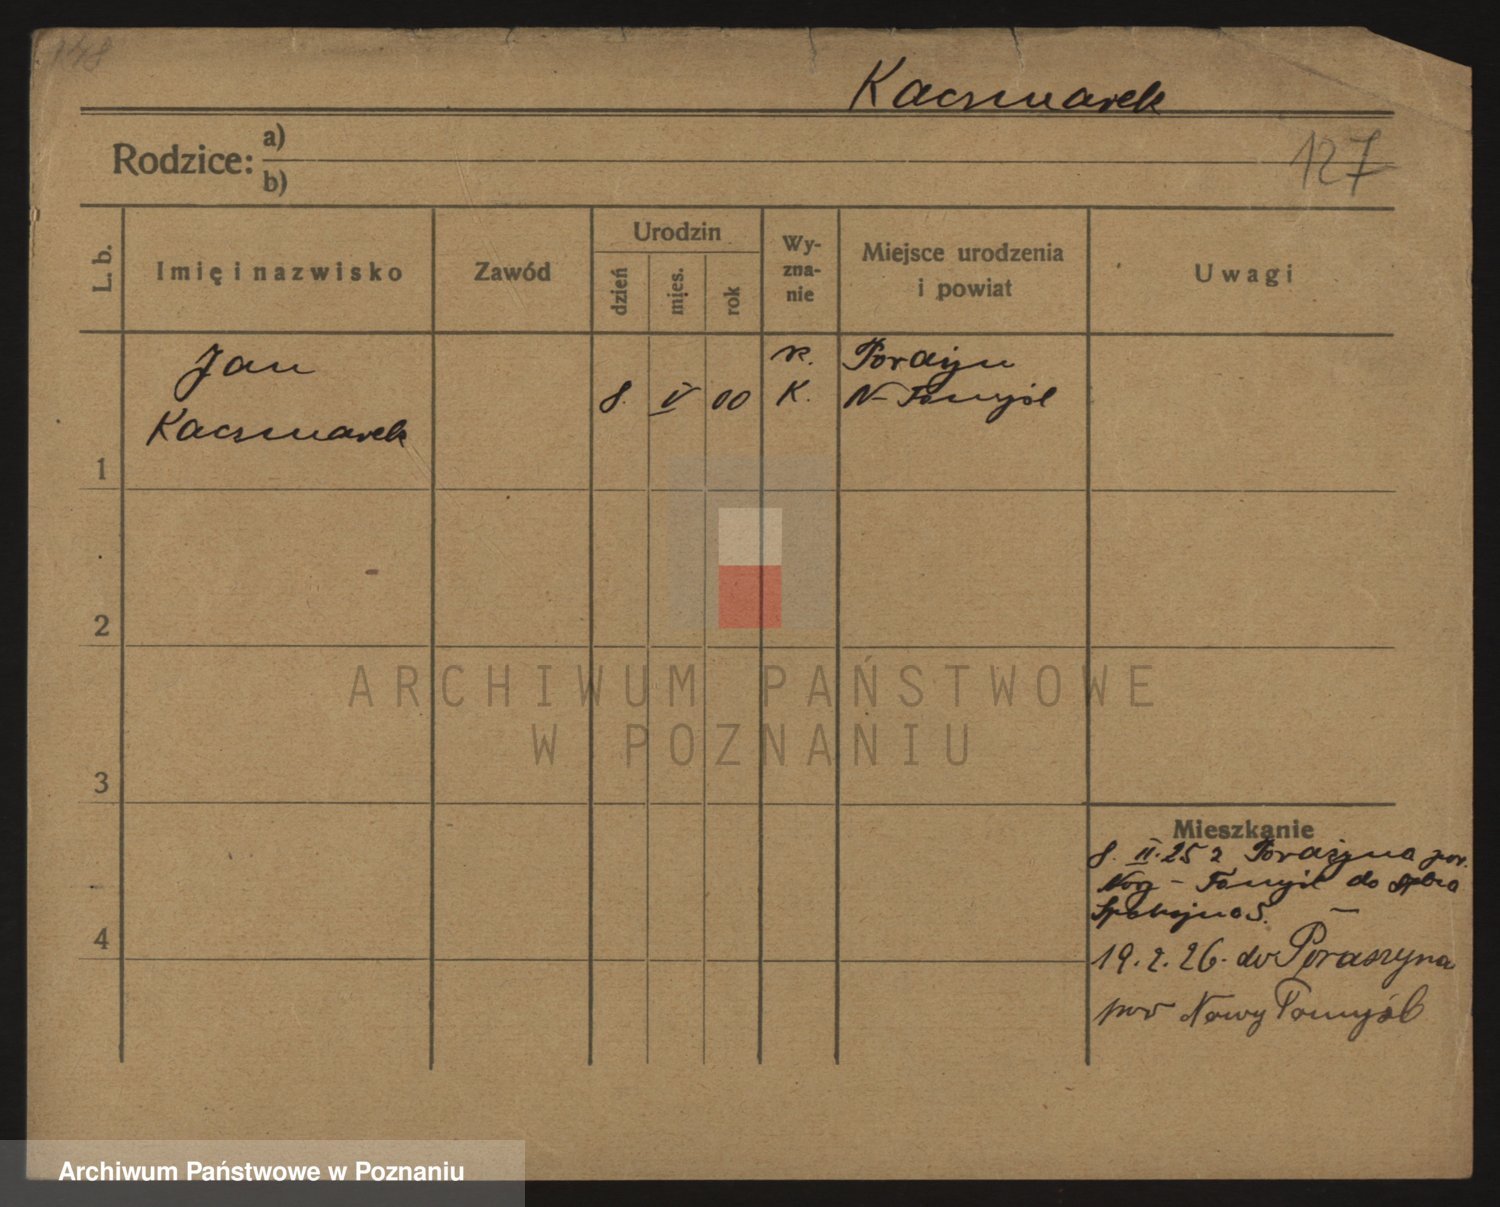 148
Kaczmarek
Rodzice: a)
b)
127
L. b.
Imię i nazwisko
Zawód
Urodzin
dzień
mies.
rok
Wy-
zna-
nie
Miejsce urodzenia
i powiat
Uwagi
Jan
Kaczmarek
8. V 00
r.
K.
Porażyn
N-Tomyśl
1
2
3
4
ARCHIWUM PAŃSTWOWE
W POZNANIU
Mieszkanie
8. II. 25 z Porażyna pow.
Nowy-Tomyśl do
Spokojna 5.
19. 2. 26. do Poraszyna
pow Nowy Tomyśl
Archiwum Państwowe w Poznaniu